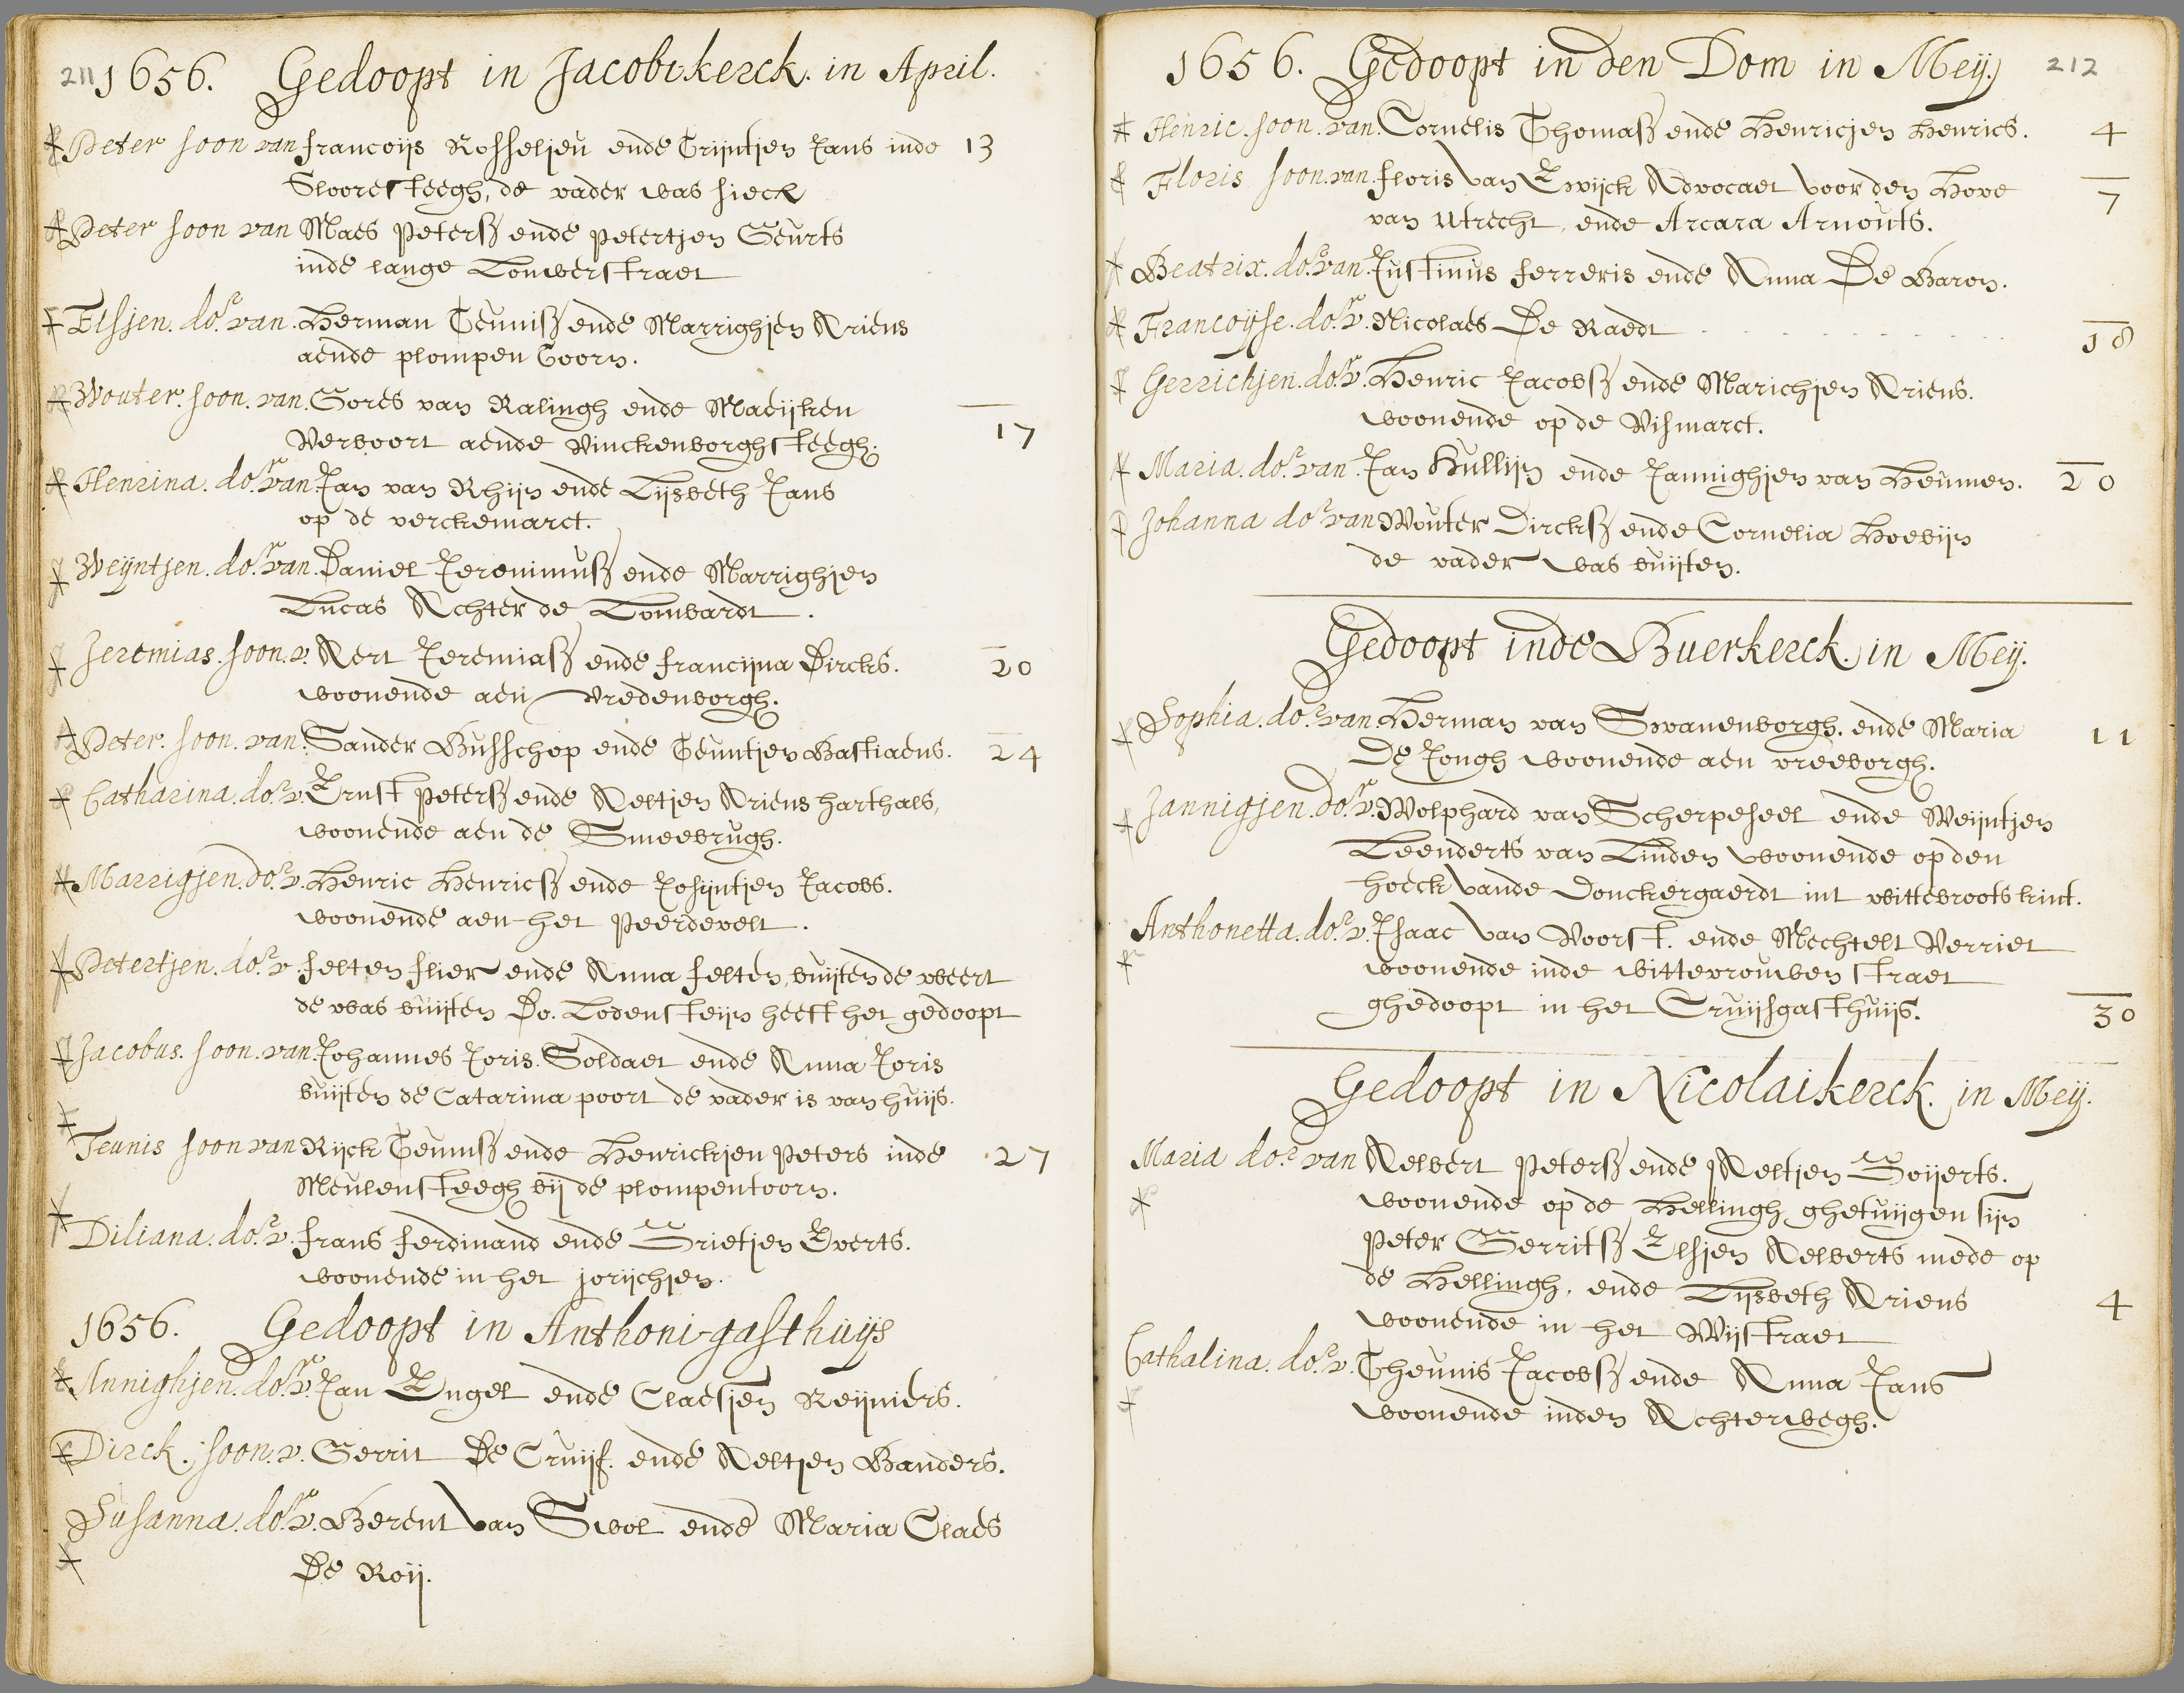 211 1656. Gedoopt in Jacobikerck. in April.
Peter soon van francoijs Rosseljeu ende Trijntjen Jans inde 13
Slooresteegh, de vader was sieck
Peter soon van Maes Peterss ende Petertjen Geurts
inde lange Louwerstraet
Elsjen. do.r van. Herman Teuniss ende Marrighjen Ariens
aende plompen Toorn.
Wouter. soon. van. Gores van Ralingh ende Maeijken
Vervoort aende Vinckenborghsteegh. 17
Henrina. do.r van Jan van Rhijn ende Lijsbeth Jans
op de verckemarct.
Weijntjen. do.r van. Daniel Jeronimuss ende Marrighjen
Lucas Achter de Lombardt.
Jeremias. soon. v. Aert Jeremiass ende francijna Dircks. 20
woonende aen vredenborgh.
Peter. soon. van. Sander Busschop ende Teuntjen Bastiaens. 24
Catharina. do.r v. Ernst Peterss ende Aeltjen Ariens harthals,
woonende aen de Smeebrugh.
Marrigjen. do.r v. Henric Henricss ende Josijntjen Jacobs.
woonende aen het Peerdevelt.
Petertjen. do.r v. felten flier ende Anna felten, buijten de weert
de was buijten Do. Lodensteijn heeft het gedoopt
Jacobus. soon. van Johannes Joris. Soldaet ende Anna Joris
buijten de Catarina poort de vader is van huijs.
Teunis soon van Rijck Teuniss ende Henrickjen Peters inde 27
Meulensteegh bij de plompentoorn.
Diliana. do.r v. frans ferdinand ende Grietjen Everts.
woonende in het jorijchjen.
1656. Gedoopt in Anthoni-gasthuijs
Annighjen. do.r v. Jan Engel ende Claesjen Reijniers.
Dirck. soon. v. Gerrit De Cruijf. ende Aeltjen Banders.
Susanna. do.r v. Berent van Swol ende Maria Claes
De Roij.
1656. Gedoopt in den Dom in Meij. 212
Henric. soon. van. Cornelis Thomass ende Henricjen Henrics. 4
Floris soon. van floris van Ewijck Advocaet voor den Hove
van Utrecht, ende Arcara Arnouts. 7
Beatrix. do.r van. Justinus ferreris ende Anna De Baron.
Francoijse. do.r v. Nicolaes De Raedt 18
Gerrichjen. do.r v. Henric Jacobss ende Marichjen Ariens.
woonende op de Vismarct.
Maria. do.r van. Jan Hullijn ende Jannighjen van Heumen. 20
Johanna do.r van Wouter Dirckss ende Cornelia Hoevijn
de vader was buijten.
Gedoopt inde Buerkerck. in Meij.
Sophia. do.r van Herman van Swanenborgh. ende Maria 11
De Jongh woonende aen vreeborgh.
Jannigjen. do.r v. Wolphard van Scherpeseel ende Weijntjen
Leenderts van Linden woonende op den
hoeck vande Donckergaerdt int wittebroots kint.
Anthonetta. do.r v. Isaac van Voorst. ende Mechtelt Verriet
woonende inde wittevrouwen straet
ghedoopt in het Cruijsgasthuijs. 30
Gedoopt in Nicolaikerck. in Meij.
Maria do.r van Aelbert Peterss ende Aeltjen Goijerts.
woonende op de Hellingh ghetuijgen sijn
Peter Gerritss Elsjen Aelberts mede op
de Hellingh, ende Lijsbeth Ariens
woonende in het Wijstraet 4
Cathalina. do.r v. Theunis Jacobss ende Anna Jans
woonende inden Achterwegh.